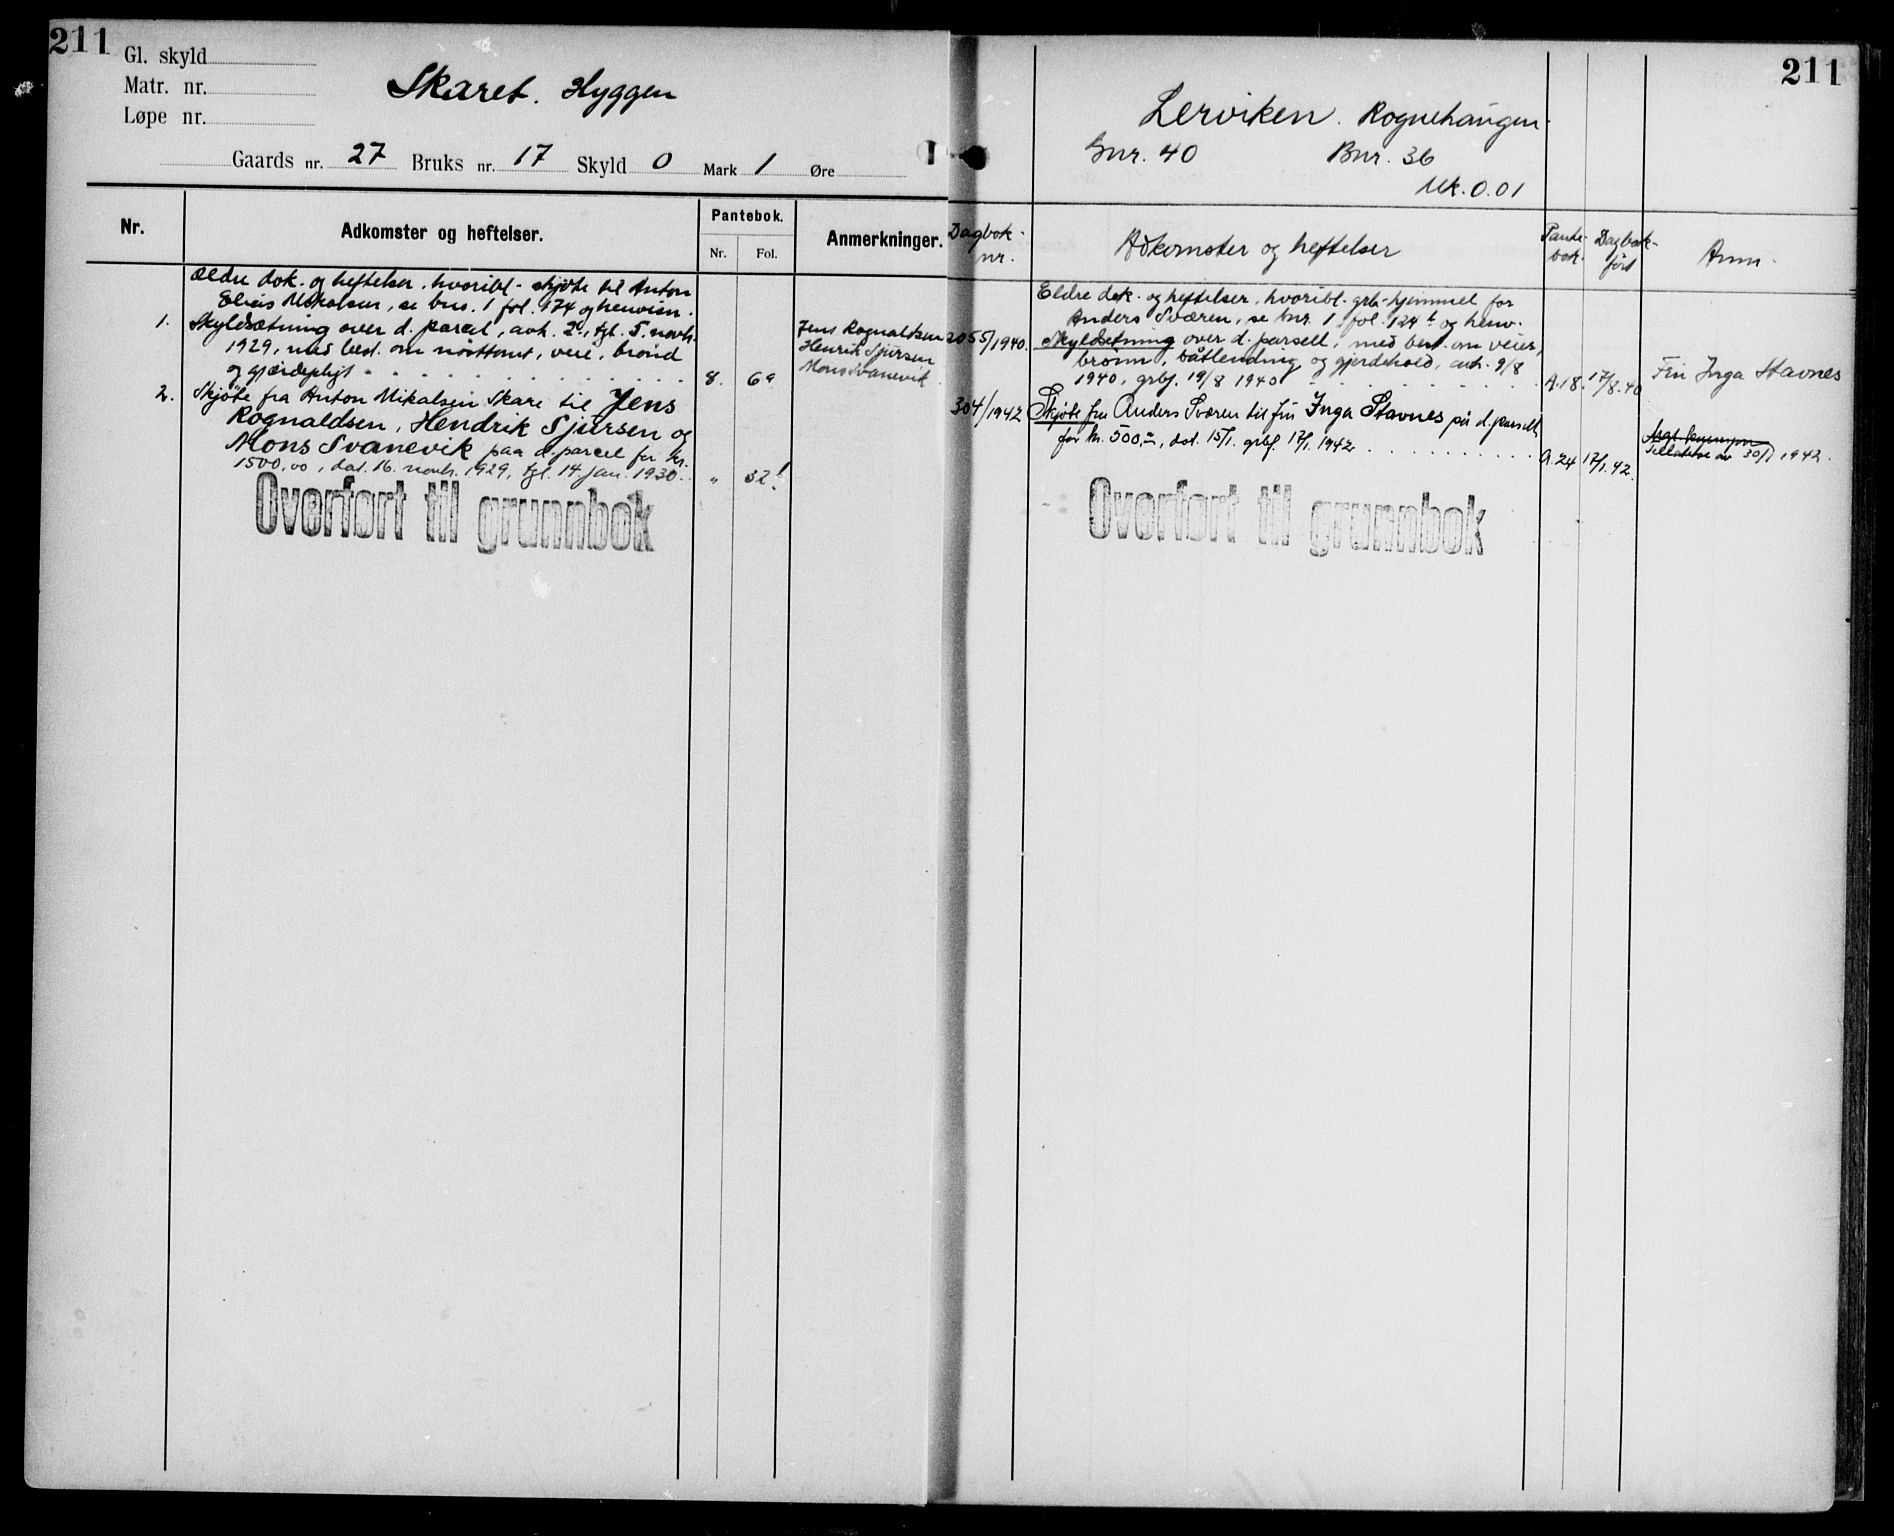 211
Gl. skyld
Matr. nr.
Løpe nr.
Skaret. Hyggen
Gaards nr. 27 Bruks nr. 17 Skyld 0 Mark 1 Øre
Nr. Adkomster og heftelser. Pantebok. Anmerkninger.
Nr. Fol.
Ældre dok. og heftelser, hvoribl. skjøte til Anton
Elieis Mikalsen, se bno. 1 fol. 174 og henvisn.
1. Skyldsætning over d. parcel, avh. 2., tgl. 5. novbr.
1929, med bed. om nösttomt, veie, brönd
og gjærdepligt 8. 6a
Jens Rognaldsen
Henrik Sjursen
Mons Svanevik
2. Skjöte fra Anton Mikalsen Skare til Jens
Rognaldsen, Hendrik Sjursen og
Mons Svanevik paa d. parcel for kr.
1500,00, dat. 16. novbr. 1929, tgl. 14. jan. 1930. " 32
Overført til grunnbok
211
Lerviken. Rognehaugen
Gnr. 40 Bnr. 36
Mk. 0.01
Dagbok-nr. Adkomster og heftelser Pantebok. Dagbokført Anm.
Eldre dok. og heftelser, hvoribl. grb.hjemmel for
Anders Sværen, se bnr. 1 fol. 124 b og henv.
2055/1940. Skyldsetning over d. parsell, med best. om veier,
brönn, båtlending og gjerdehold, avh. 9/8
1940, grbf. 19/8 1940 A.18. 17/8.40 Frú Inga Stavnes
304/1942 Skjöte fra Anders Sværen til frú Inga Stavnes på d. parsell
for kr. 500,-, dat. 15/1. grbf. 17/1. 1942 A.24 17/1.42.
Tillatelse av 30/1 1942.
Overført til grunnbok